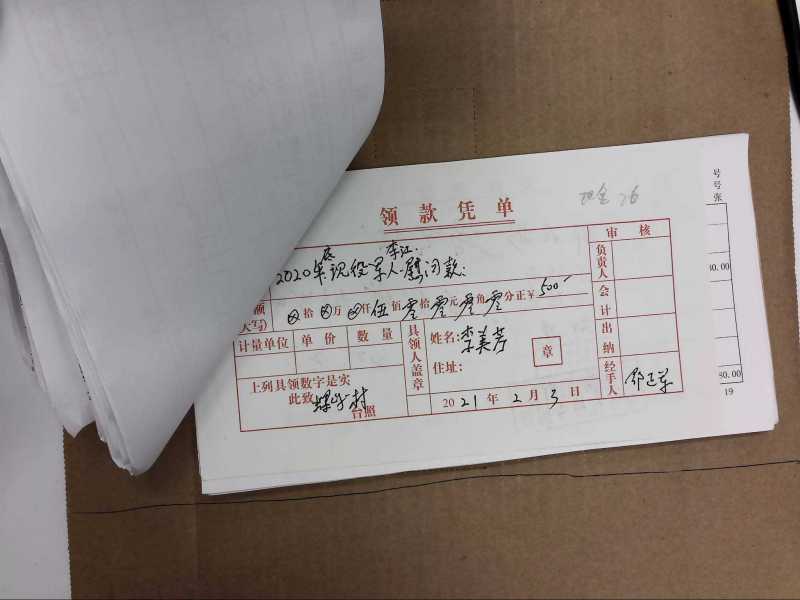 现金 26
领款凭单
李江.
2020年底现役军人慰问款:
额
大写)
⊗拾⊗万⊗仟伍佰零拾零元零角零分正¥500-
计量单位 单价 数量
具领人盖章
姓名:李美芳
住址:
章
上列具领数字是实
此致
台照
2021年2月3日
审核
负责人
会计
出纳
经手人
号
号
张
80.00
19